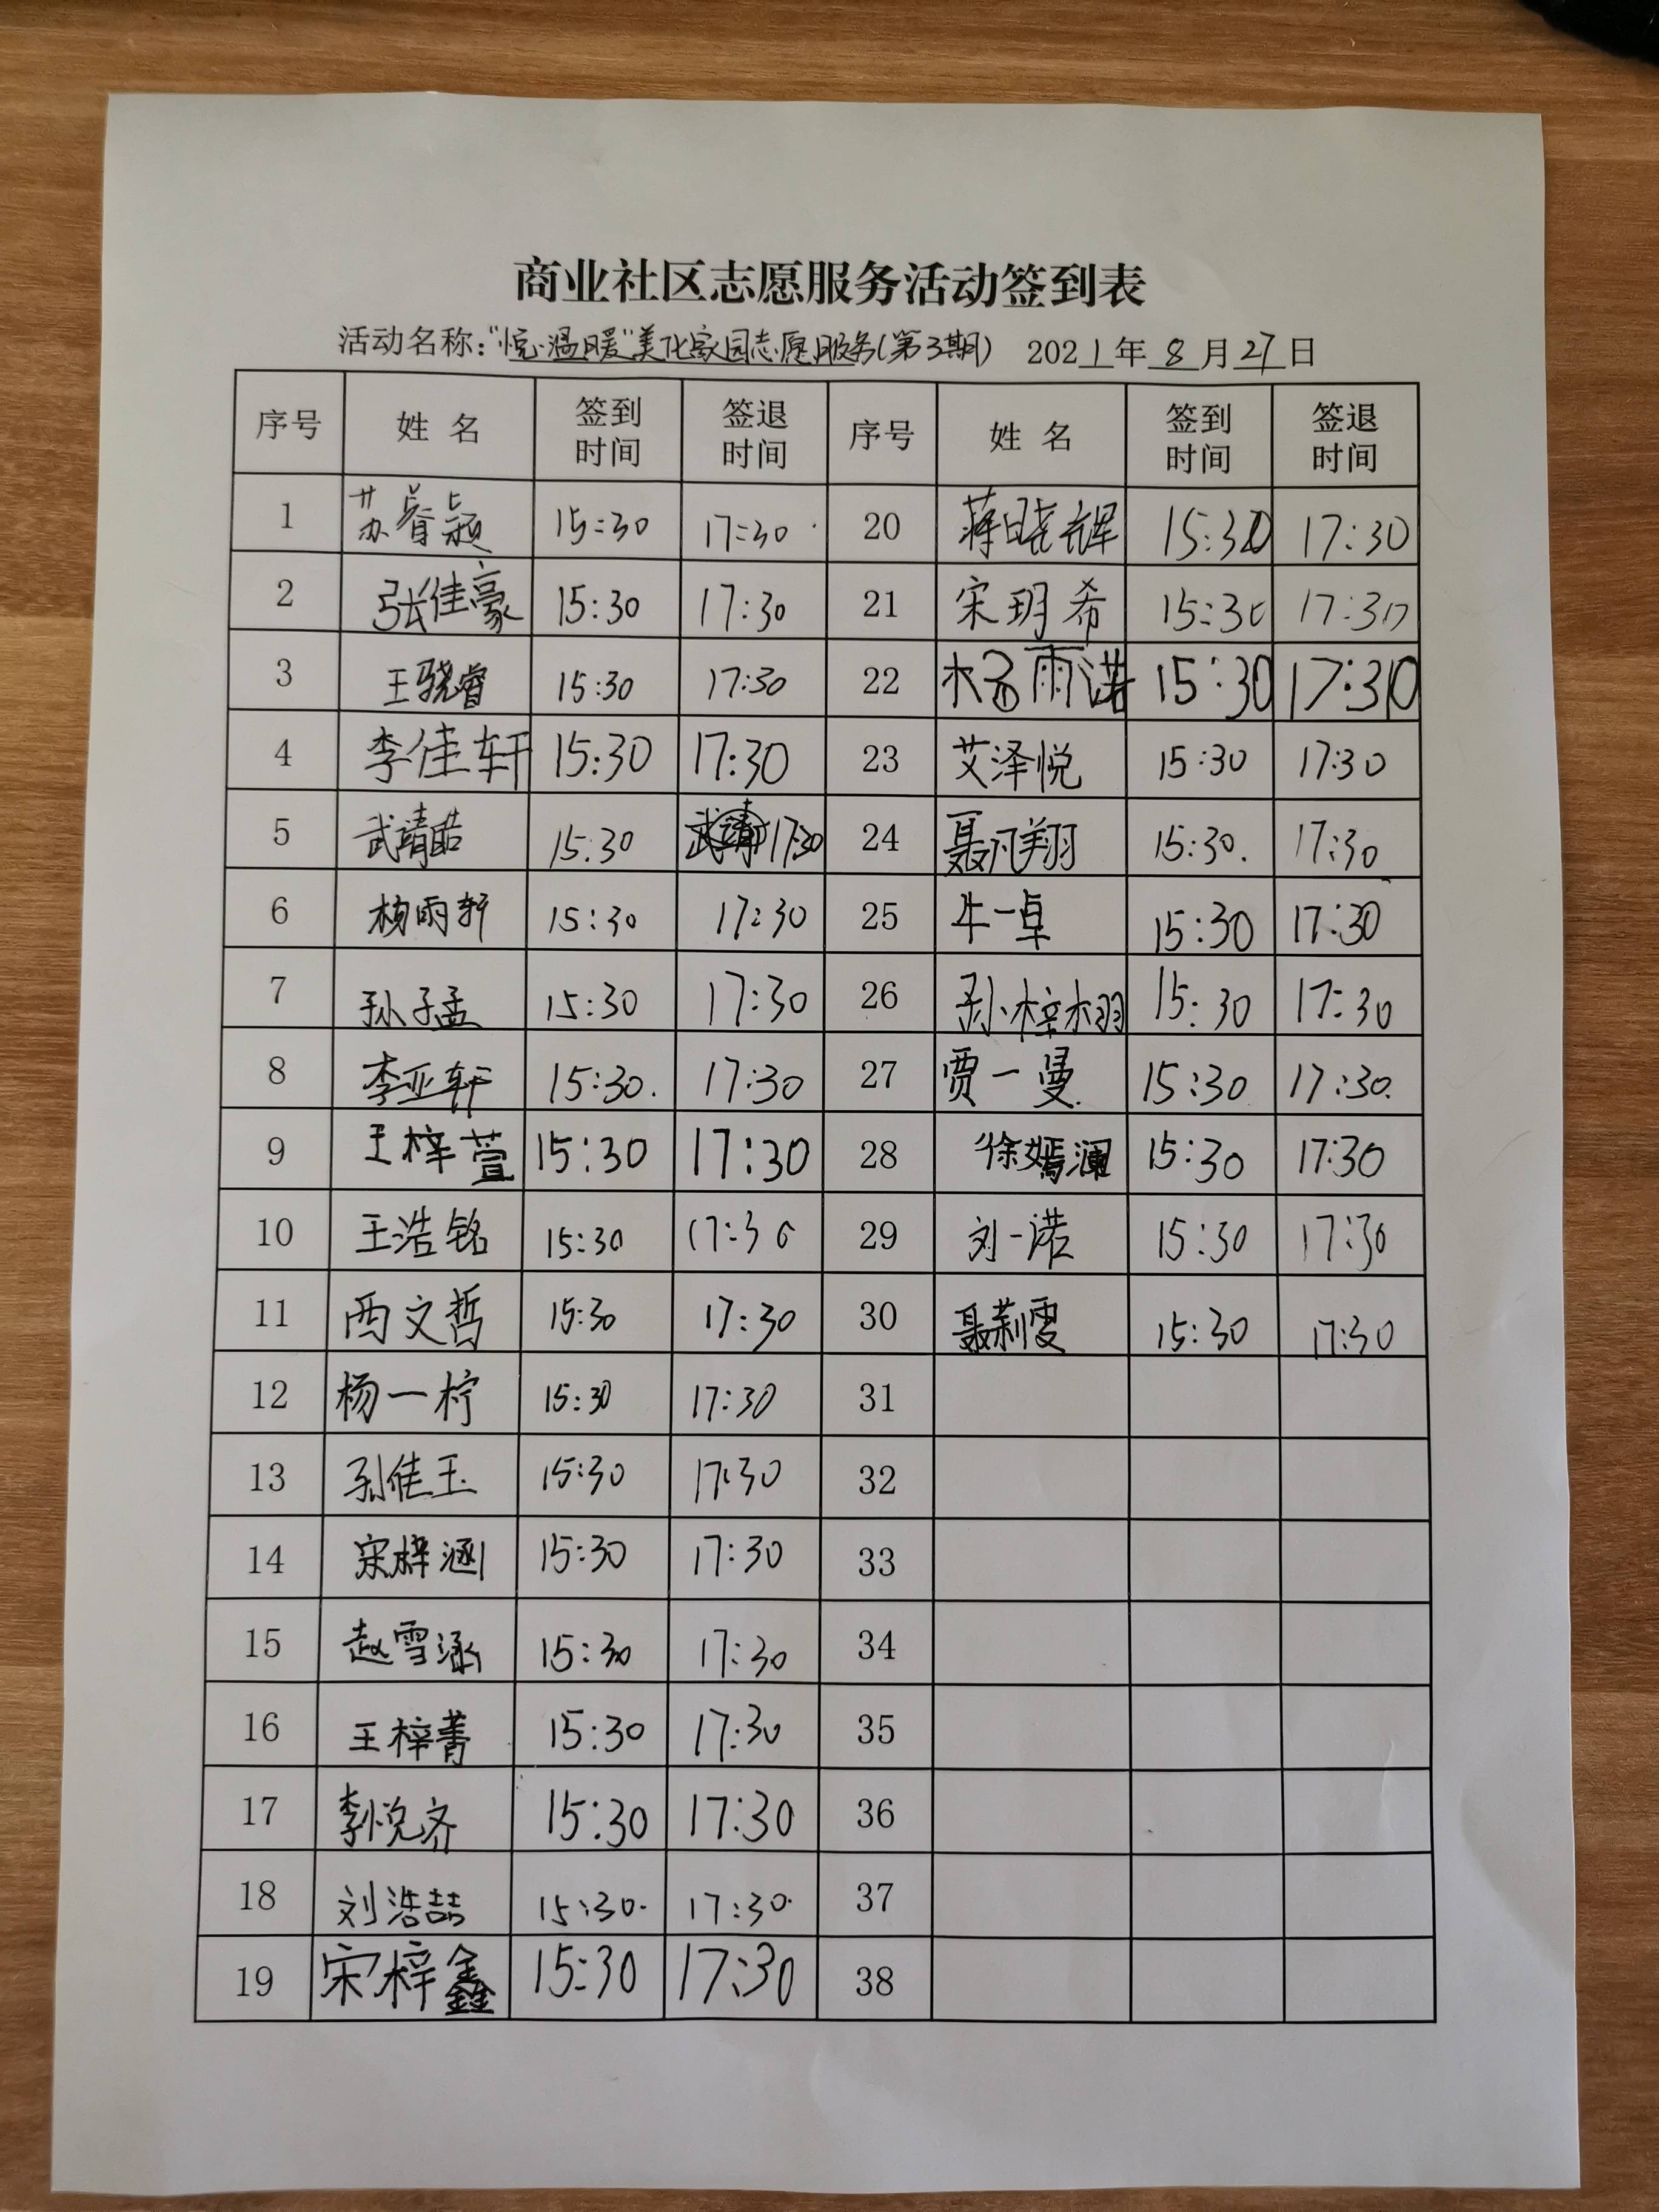 商业社区志愿服务活动签到表
活动名称：“悦·温暖”美化家园志愿服务(第3期) 2021年8月27日
序号 姓名 签到时间 签退时间 序号 姓名 签到时间 签退时间
1 苏睿颖 15:30 17:30 20 蒋曉辉 15:30 17:30
2 张佳豪 15:30 17:30 21 宋玥希 15:30 17:30
3 王骁睿 15:30 17:30 22 雨诺 15:30 17:30
4 李佳轩 15:30 17:30 23 艾泽悦 15:30 17:30
5 武靖皓 15:30 17:30 24 聂凡翔 15:30. 17:30
6 杨雨轩 15:30 17:30 25 牛一卓 15:30 17:30
7 孙子孟 15:30 17:30 26 孙梓栩 15:30 17:30
8 李亚轩 15:30. 17:30 27 贾一曼. 15:30 17:30.
9 王梓萱 15:30 17:30 28 徐嫣澜 15:30 17:30
10 王浩铭 15:30 17:30 29 刘一诺 15:30 17:30
11 西文哲 15:30 17:30 30 聂莉雯 15:30 17:30
12 杨一柠 15:30 17:30 31
13 孙佳玉 15:30 17:30 32
14 宋梓涵 15:30 17:30 33
15 赵雪涵 15:30 17:30 34
16 王梓菁 15:30 17:30 35
17 李悦齐 15:30 17:30 36
18 刘浩喆 15:30. 17:30. 37
19 宋梓鑫 15:30 17:30 38